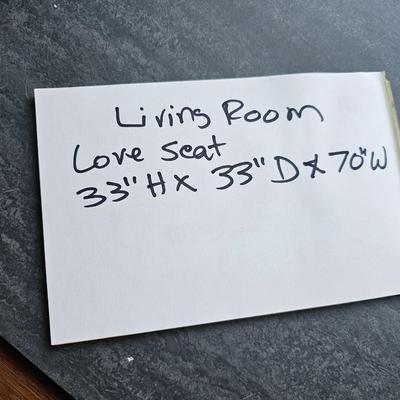 Living Room
Love Seat
33" H x 33" D x 70" W